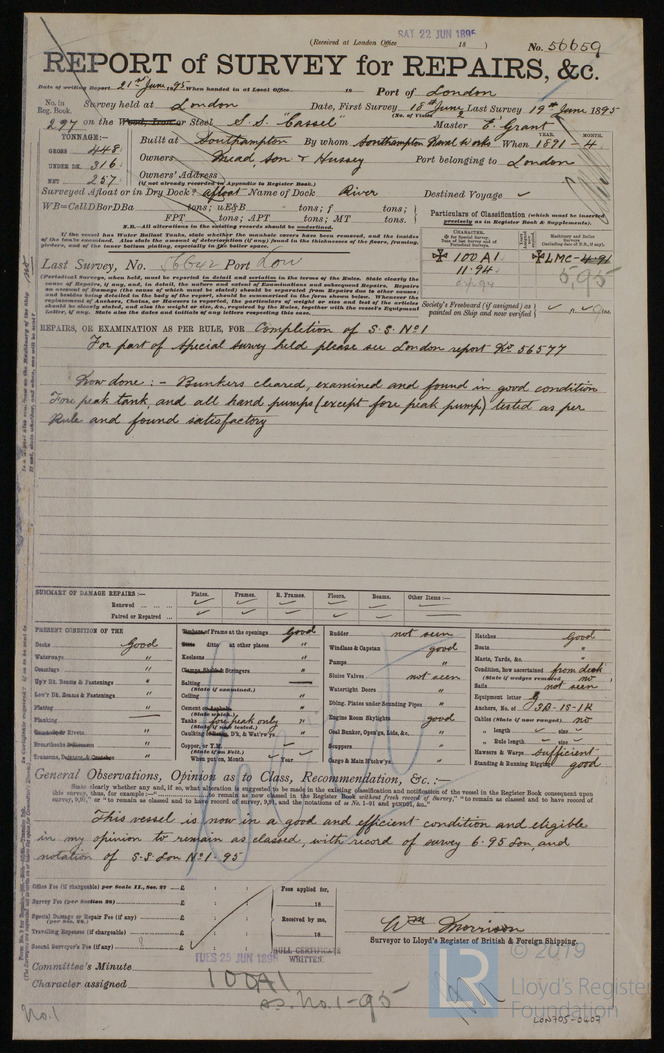 (Received at London Office SAT 22 JUN 1895 18 ) No. 56659
REPORT of SURVEY for REPAIRS, &c.
Date of writing Report 21st June 1895 When handed in at Local Office 18 Port of London
No. in Reg. Book. Survey held at London Date, First Survey 15th June, Last Survey 19th June 1895
(No. of Visits 2
297 on the Wood, Iron or Steel S.S. "Cassel" Master E. Grant
TONNAGE:—
GROSS 448
UNDER DK. 316
NET 257
Built at Southampton By whom Southampton Naval Works When 1891 - 4
YEAR. MONTH.
Owners Mead Son & Hussey Port belonging to London
Owners' Address
(if not already recorded in Appendix to Register Book.)
Surveyed Afloat or in Dry Dock? afloat Name of Dock River Destined Voyage
WB=CellDBorDBa tons; uE&B tons; f tons;
FPT tons; APT tons; MT tons.
N.B.—All alterations in the existing records should be underlined.
If the vessel has Water Ballast Tanks, state whether the manhole covers have been removed, and the insides
of the tanks examined. Also state the amount of deterioration (if any) found in the thicknesses of the floors, framing,
and of the inner bottom plating, especially in the boiler space.
Particulars of Classification (which must be inserted
precisely as in Register Book & Supplements).
CHARACTER.
100A1
11.94
LMC 4.91
5,95
Society's Freeboard (if assigned) as
painted on Ship and now verified
Last Survey, No. 56642 Port Lon
(Periodical Surveys, when held, must be reported in detail and seriatim in the terms of the Rules. State clearly the
cause of Repairs, if any, and, in detail, the nature and extent of Examinations and subsequent Repairs. Repairs
on account of Damage (the cause of which must be stated) should be separated from Repairs due to other causes;
and besides being detailed in the body of the report, should be summarised in the form shewn below. Whenever the
replacement of Anchors, Chains, or Hawsers is reported, the particulars of weight or size and test of the articles
should be clearly stated, and also the weight or size, &c., required by the Rules, together with the vessel's Equipment
Letter, if any. State also the dates and initials of any letters respecting this case.
REPAIRS, OR EXAMINATION AS PER RULE, FOR Completion of S.S. No1
For part of special survey held please see London report No 56577
Now done:- Bunkers cleared, examined and found in good condition
Fore peak tank, and all hand pumps (except fore peak pump) tested as per
Rule and found satisfactory
SUMMARY OF DAMAGE REPAIRS:— Plates. Frames. R. Frames. Floors. Beams. Other Items:—
Renewed ... ... ...
Faired or Repaired ...
PRESENT CONDITION OF THE
Decks Good
Waterways "
Coamings "
Up'r Dk. Beams & Fastenings "
Low'r Dk. Beams & Fastenings "
Plating "
Planking
Transoms, Pointers, & Crutches
Timbers of Frame at the openings Good
Ditto ditto at other places "
Keelsons "
Clamps, Shelfs & Stringers "
Salting
(State if examined.)
Ceiling "
Cement or Asphalt "
(State which.)
Tanks fore peak only
(State if now tested.)
Caulking of Bottom, D'k, & Wat'rw'ys "
Copper, or Y.M.
(State if on Felt.)
When put on, Month Year
Rudder not seen
Windlass & Capstan good
Pumps "
Sluice Valves not seen
Watertight Doors "
Dblng. Plates under Sounding Pipes "
Engine Room Skylights good
Coal Bunker, Open'gs, Lids, &c. "
Scuppers "
Cargo & Main Hatchw'ys "
Hatches Good
Boats "
Masts, Yards, &c. "
Condition, how ascertained from deck
(State if wedges removed no
Sails not seen
Equipment letter g
Anchors, No. of 3B-1S-1K
Cables (State if now ranged) no
" length size
" Rule length size
Hawsers & Warps Sufficient
Standing & Running Rigging good
General Observations, Opinion as to Class, Recommendation, &c.:—
This vessel is now in a good and efficient condition and eligible
in my opinion to remain as classed, with record of survey 6.95 Lon, and
notation of S.S Lon No1-95
Office Fee (if chargeable) per Scale II., Sec. 27 £
Survey Fee (per Section 28) £
Special Damage or Repair Fee (if any) £
(per Sec. 28.)
Travelling Expenses (if chargeable) £
Second Surveyor's Fee (if any) £
Fees applied for,
18
Received by me,
18
HULL CERTIFICATE
WRITTEN
Wm Morrison
Surveyor to Lloyd's Register of British & Foreign Shipping.
Committee's Minute TUES 25 JUN 1895
Character assigned 100A1
s.s. No. 1-95
No. 1
LON705-0407
© 2019
LR
Lloyd's Register
Foundation